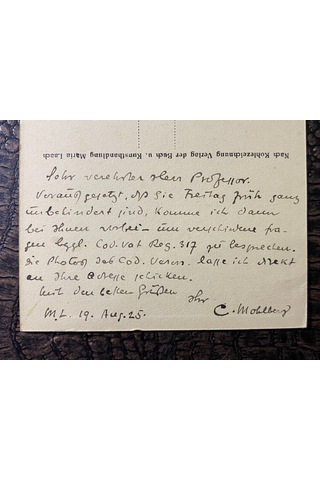 Nach Kohlezeichnung Verlag der Buch- u. Kunsthandlung Maria Laach
Sehr verehrter Herr Professor.
Vorausgesetzt, dß Sie Freitag früh ganz
unbehindert sind, komme ich dann
bei Ihnen vorbei um verschiedene fra-
gen bzgl. Cod. Vat. Reg. 317 zu besprechen.
Die Photos des Cod. Veron. lasse ich direkt
an Ihre Adresse schicken.
Mit den besten Grüßen
Ihr
M.L. 19. Aug. 25. C. Mohlberg